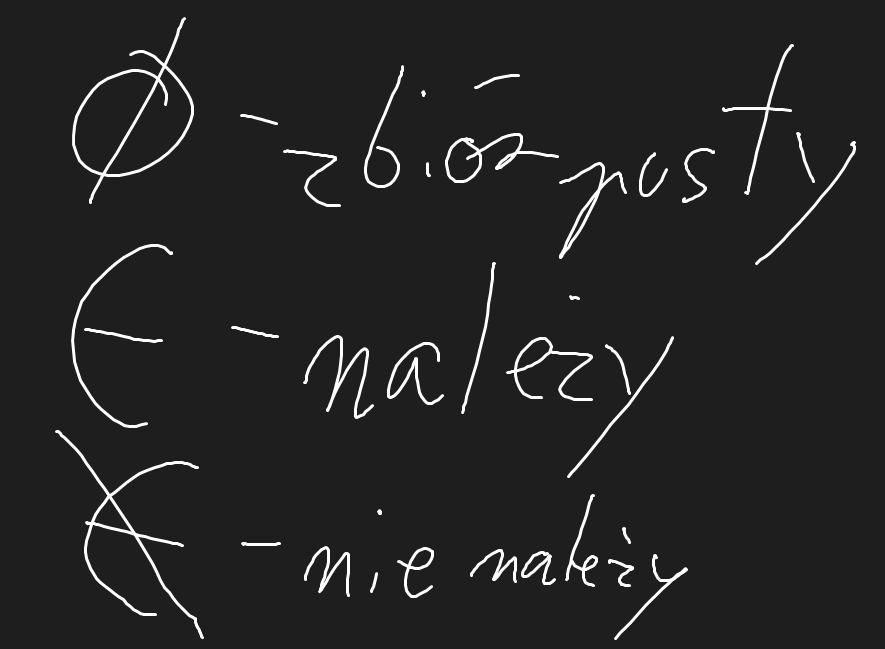 ∅ - zbiór pusty
∈ - należy
∉ - nie należy